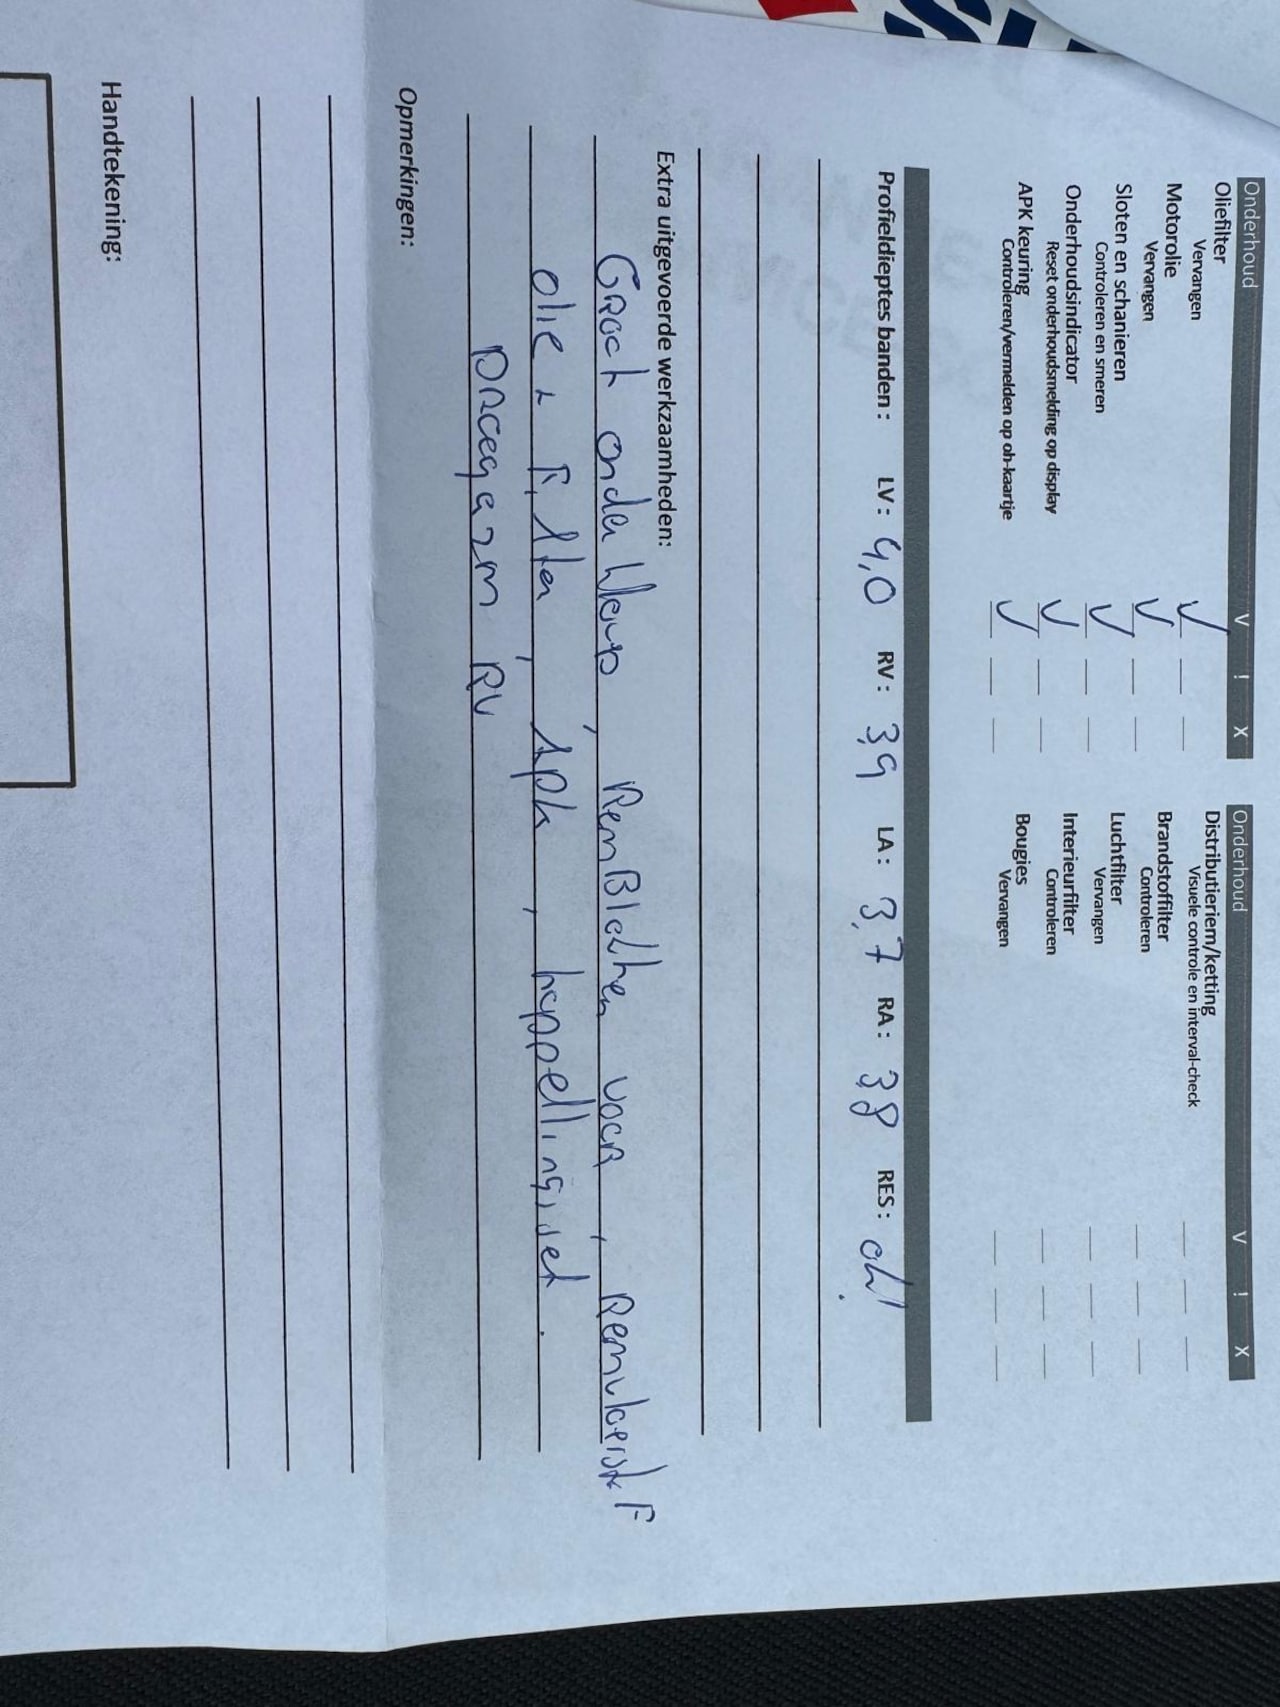 Onderhoud V ! X
Oliefilter
Vervangen
Motorolie
Vervangen
Sloten en schanieren
Controleren en smeren
Onderhoudsindicator
Reset onderhoudsmelding op display
APK keuring
Controleren/vermelden op oh-kaartje
Onderhoud V ! X
Distributieriem/ketting
Visuele controle en interval-check
Brandstoffilter
Controleren
Luchtfilter
Vervangen
Interieurfilter
Controleren
Bougies
Vervangen
Profieldieptes banden : LV : 4,0 RV : 3,9 LA : 3,7 RA : 3,8 RES : ok!
Extra uitgevoerde werkzaamheden:
Groot onderhoud, RemBlokken voor, Remvloeistof
olie + Filter, Apk, koppelingset.
Draagarm RV
Opmerkingen:
Handtekening: